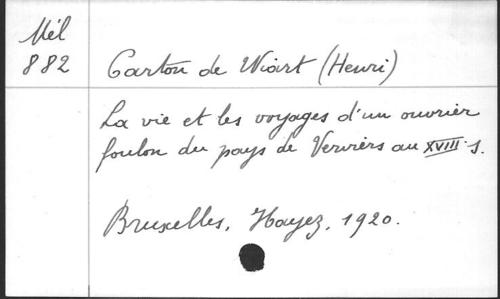 Mél
882
Carton de Wiart (Henri)
La vie et les voyages d'un ouvrier
foulon du pays de Verviers au XVIII s.
Bruxelles, Hayez, 1920.